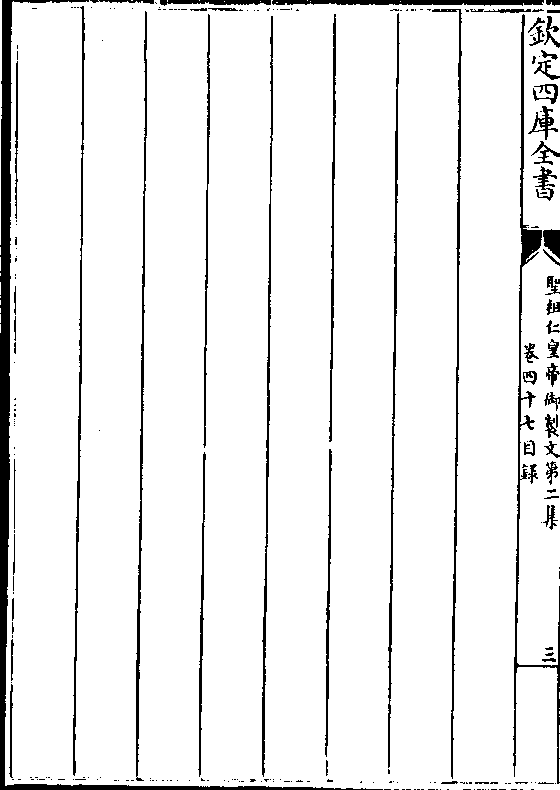 欽定四庫全書
聖祖仁皇帝御製文第二集
卷四十七目録
三